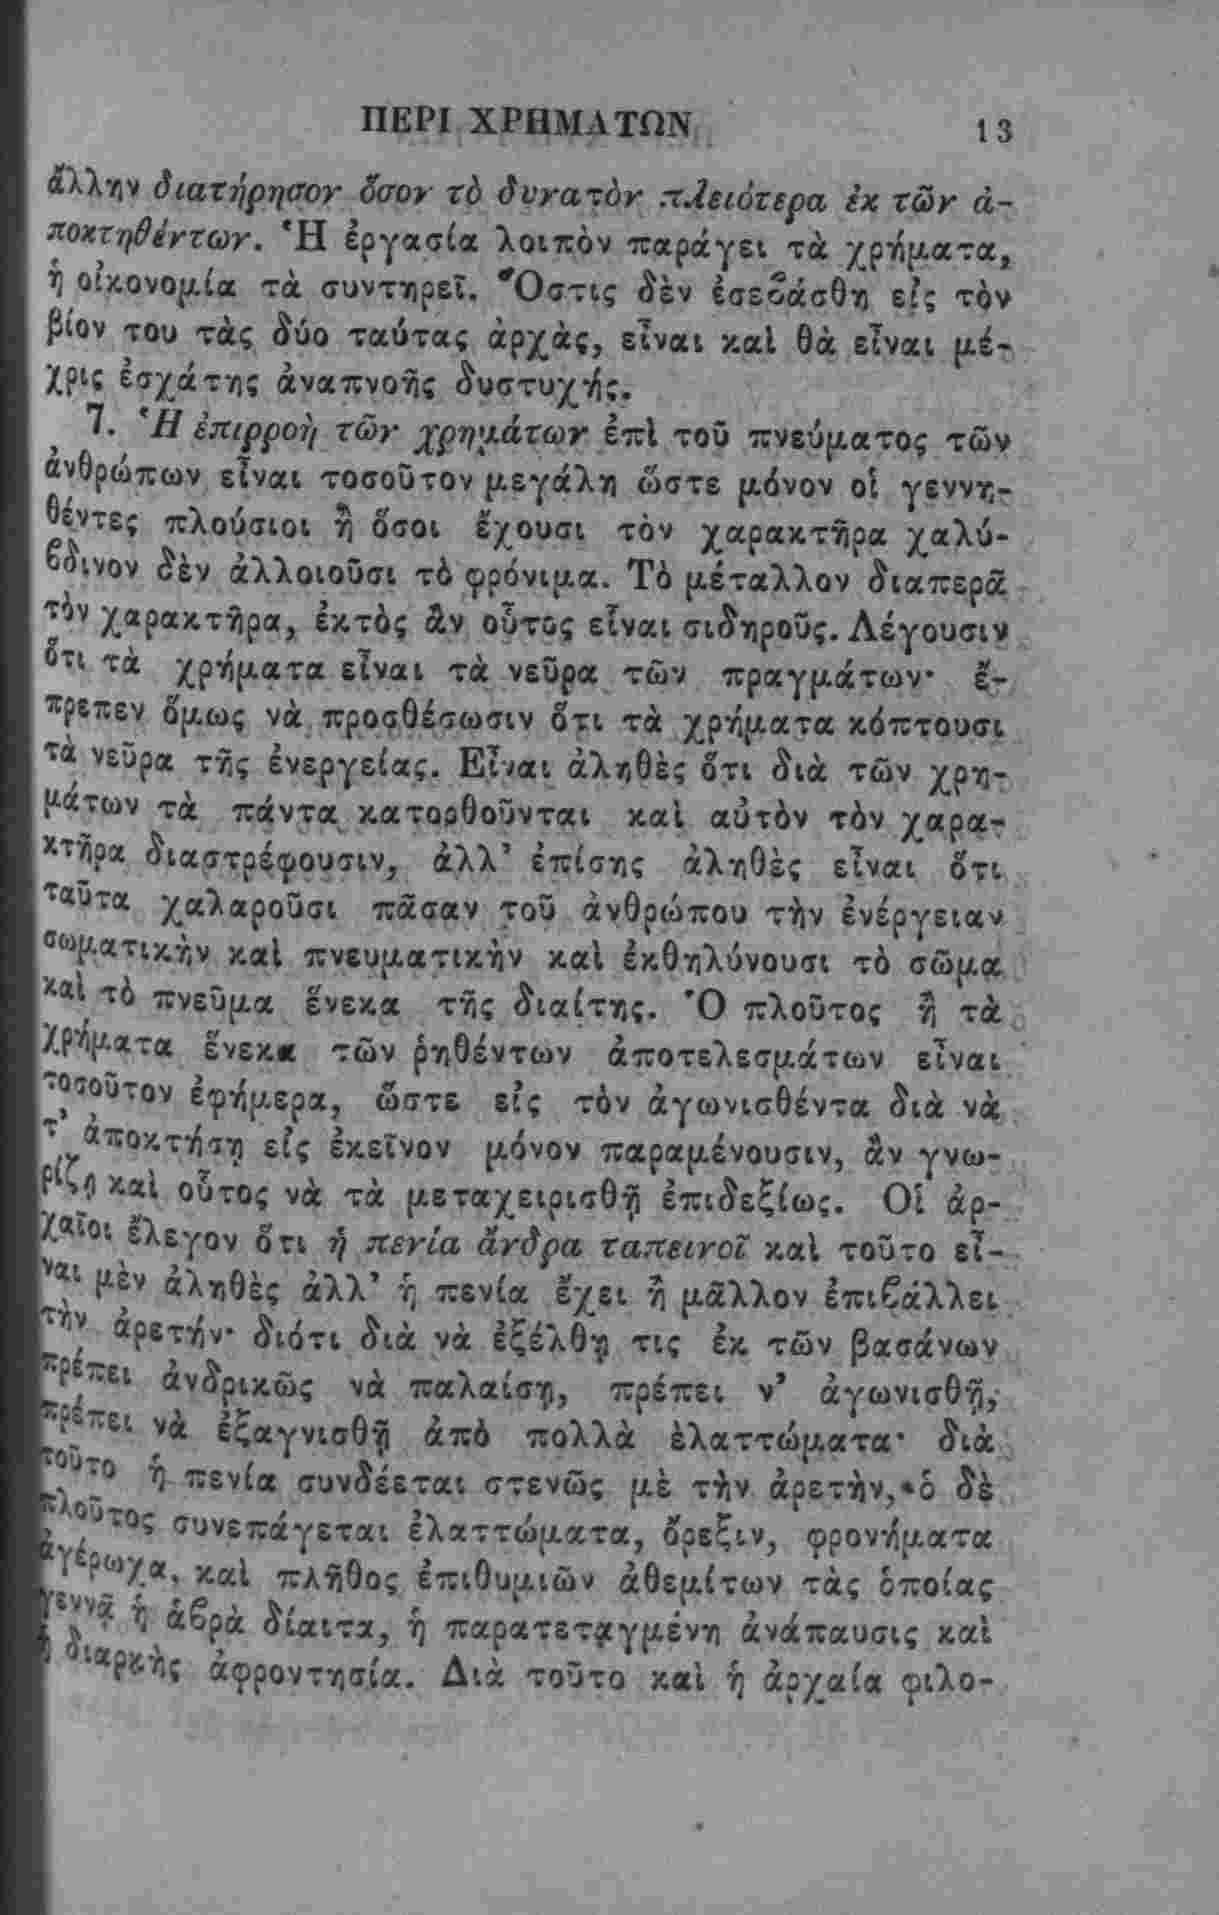 ΠΕΡΙ ΧΡΗΜΑΤΩΝ 13
ἄλλην διατήρησον ὅσον τὸ δυνατὸν πλειότερα ἐκ τῶν ἀ-
ποκτηθέντων. Ἡ ἐργασία λοιπὸν παράγει τὰ χρήματα,
ἡ οἰκονομία τὰ συντηρεῖ. Ὅστις δὲν ἐσεβάσθη εἰς τὸν
βίον του τὰς δύο ταύτας ἀρχὰς, εἶναι καὶ θὰ εἶναι μέ-
χρις ἐσχάτης ἀναπνοῆς δυστυχής.
7. Ἡ ἐπιρροὴ τῶν χρημάτων ἐπὶ τοῦ πνεύματος τῶν
ἀνθρώπων εἶναι τοσοῦτον μεγάλη ὥστε μόνον οἱ γεννη-
θέντες πλούσιοι ἢ ὅσοι ἔχουσι τὸν χαρακτῆρα χαλύ-
βδινον δὲν ἀλλοιοῦσι τὸ φρόνιμα. Τὸ μέταλλον διαπερᾷ
τὸν χαρακτῆρα, ἐκτὸς ἂν οὗτος εἶναι σιδηροῦς. Λέγουσιν
ὅτι τὰ χρήματα εἶναι τὰ νεῦρα τῶν πραγμάτων· ἔ-
πρεπεν ὅμως νὰ προσθέσωσιν ὅτι τὰ χρήματα κόπτουσι
τὰ νεῦρα τῆς ἐνεργείας. Εἶναι ἀληθὲς ὅτι διὰ τῶν χρη-
μάτων τὰ πάντα κατορθοῦνται καὶ αὐτὸν τὸν χαρα-
κτῆρα διαστρέφουσιν, ἀλλ' ἐπίσης ἀληθὲς εἶναι ὅτι
ταῦτα χαλαροῦσι πᾶσαν τοῦ ἀνθρώπου τὴν ἐνέργειαν
σωματικὴν καὶ πνευματικὴν καὶ ἐκθηλύνουσι τὸ σῶμα
καὶ τὸ πνεῦμα ἕνεκα τῆς διαίτης. Ὁ πλοῦτος ἢ τὰ
χρήματα ἕνεκα τῶν ῥηθέντων ἀποτελεσμάτων εἶναι
τοσοῦτον ἐφήμερα, ὥστε εἰς τὸν ἀγωνισθέντα διὰ νὰ
τ' ἀποκτήσῃ εἰς ἐκεῖνον μόνον παραμένουσιν, ἂν γνω-
ρίζῃ καὶ οὗτος νὰ τὰ μεταχειρισθῇ ἐπιδεξίως. Οἱ ἀρ-
χαῖοι ἔλεγον ὅτι ἡ πενία ἄνδρα ταπεινοῖ καὶ τοῦτο εἶ-
ναι μὲν ἀληθὲς ἀλλ' ἡ πενία ἔχει ἢ μᾶλλον ἐπιβάλλει
τὴν ἀρετήν· διότι διὰ νὰ ἐξέλθῃ τις ἐκ τῶν βασάνων
πρέπει ἀνδρικῶς νὰ παλαίσῃ, πρέπει ν' ἀγωνισθῇ,
πρέπει νὰ ἐξαγνισθῇ ἀπὸ πολλὰ ἐλαττώματα· διὰ
τοῦτο ἡ πενία συνδέεται στενῶς μὲ τὴν ἀρετὴν, ὁ δὲ
πλοῦτος συνεπάγεται ἐλαττώματα, ὄρεξιν, φρονήματα
ἀγέρωχα, καὶ πλῆθος ἐπιθυμιῶν ἀθεμίτων τὰς ὁποίας
γεννᾷ ἡ ἁβρὰ δίαιτα, ἡ παρατεταγμένη ἀνάπαυσις καὶ
ἡ διαρκὴς ἀφροντησία. Διὰ τοῦτο καὶ ἡ ἀρχαία φιλο-